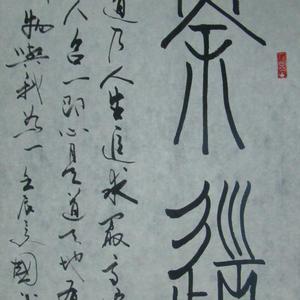 茶道
道乃人生追求最高
人合一即心是道天地有
物與我為一壬辰國